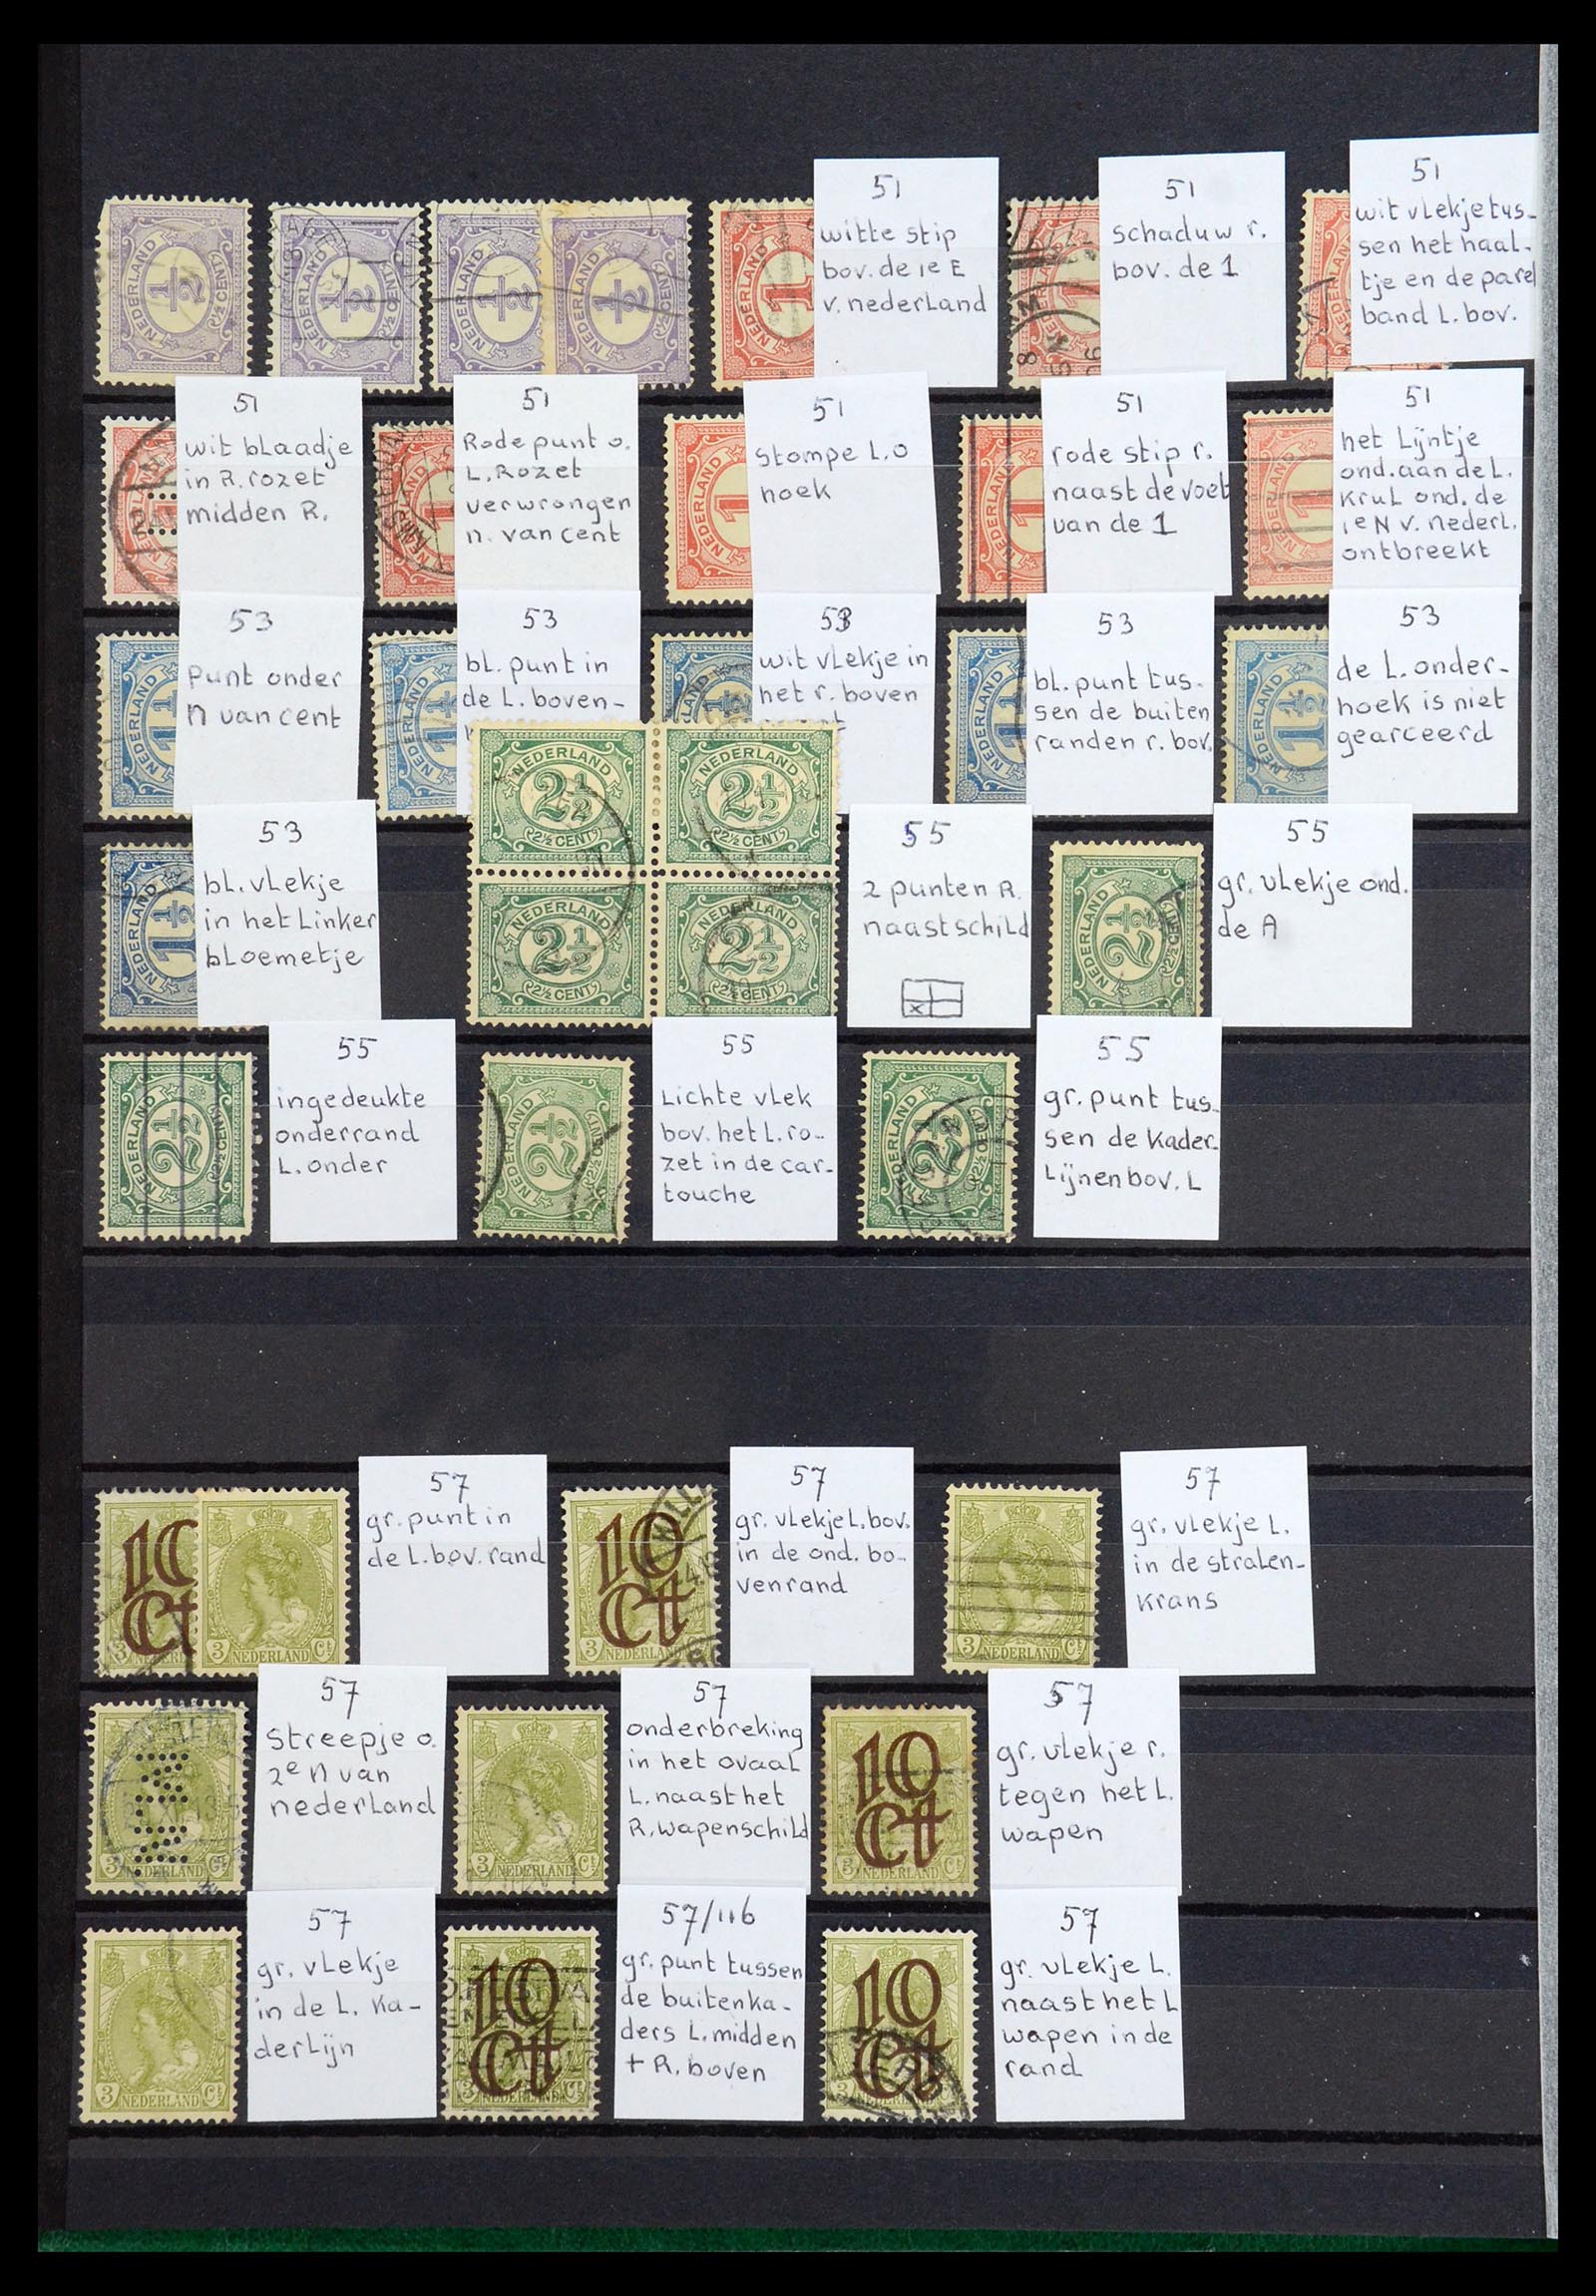 51
witte stip
bov. de 1e E
v. nederland
51
schaduw r.
bov. de 1
51
wit vlekje tus-
sen het haal-
tje en de parel
band L. bov.
51
wit blaadje
in R. rozet
midden R.
51
Rode punt o.
L. Rozet
verwrongen
n. van cent
51
Stompe L.O
hoek
51
rode stip r.
naast de voet
van de 1
51
het Lijntje
ond. aan de L.
Krul ond. de
1e N v. nederl.
ontbreekt
53
Punt onder
n van cent
53
bl. punt in
de L. boven-
53
wit vlekje in
het r. boven
53
bl. punt tus-
sen de buiten
randen r. bov.
53
de L. onder-
hoek is niet
gearceerd
53
bl. vlekje
in het Linker
bloemetje
NEDERLAND
2½
(2½ CENT)
NEDERLAND
2½
(2½ CENT)
NEDERLAND
2½
(2½ CENT)
NEDERLAND
2½
(2½ CENT)
55
2 punten R.
naast schild
x
55
gr. vlekje ond.
de A
55
ingedeukte
onderrand
L. onder
55
Lichte vlek
bov. het L. ro-
zet in de car-
touche
55
gr. punt tus-
sen de Kader-
Lijnen bov. L
10
Ct
3 NEDERLAND Ct
57
gr. punt in
de L. bov. rand
10
Ct
3 NEDERLAND Ct
57
gr. vlekje L. bov.
in de ond. bo-
venrand
3 NEDERLAND Ct
57
gr. vlekje L.
in de stralen-
krans
3 NEDERLAND Ct
57
Streepje o.
2e n van
nederland
3 NEDERLAND Ct
57
onderbreking
in het ovaal
L. naast het
R. wapenschild
10
Ct
3 NEDERLAND Ct
57
gr. vlekje r.
tegen het L.
wapen
3 NEDERLAND Ct
57
gr. vlekje
in de L. Ka-
derlijn
10
Ct
3 NEDERLAND Ct
57/116
gr. punt tussen
de buitenka-
ders L. midden
+ R. boven
10
Ct
3 NEDERLAND
57
gr. vlekje L.
naast het L
wapen in de
rand